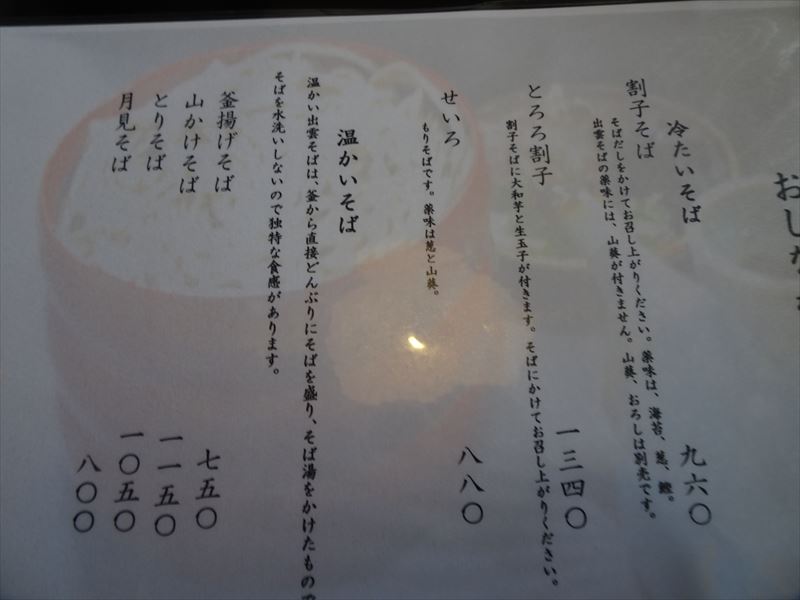 おしな
冷たいそば
割子そば 九六〇
そばだしをかけてお召し上がりください。薬味は、海苔、葱、鰹。
出雲そばの薬味には、山葵が付きません。山葵、おろしは別売です。
とろろ割子 一三四〇
割子そばに大和芋と生玉子が付きます。そばにかけてお召し上がりください。
せいろ 八八〇
もりそばです。薬味は葱と山葵。
温かいそば
温かい出雲そばは、釜から直接どんぶりにそばを盛り、そば湯をかけたもので
そばを水洗いしないので独特な食感があります。
釜揚げそば 七五〇
山かけそば 一一五〇
とりそば 一〇五〇
月見そば 八〇〇